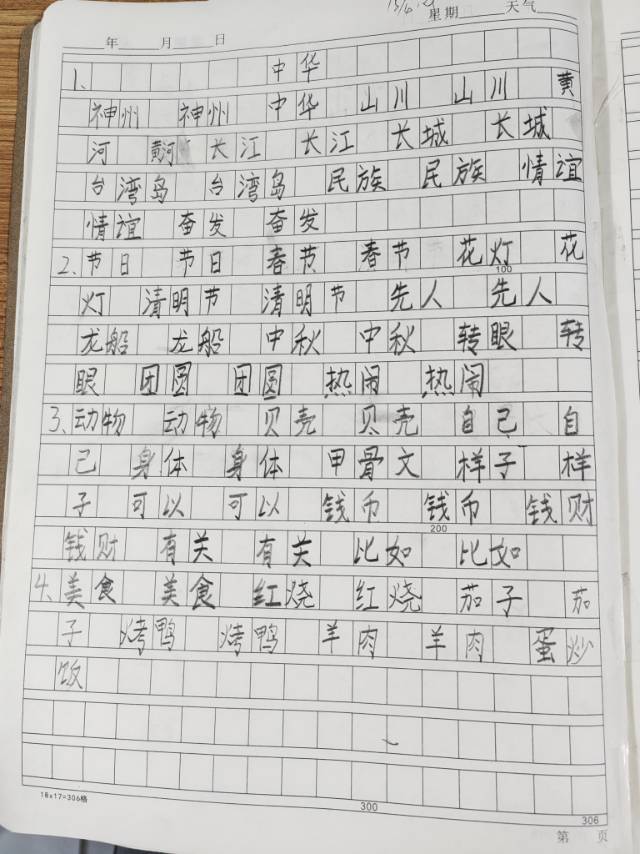 年 月 日 星期 天气
1. 中华
神州 神州 中华 山川 山川 黄
河 黄河 长江 长江 长城 长城
台湾岛 台湾岛 民族 民族 情谊
情谊 奋发 奋发
2.节日 节日 春节 春节 花灯 花
100
灯 清明节 清明节 先人 先人
龙船 龙船 中秋 中秋 转眼 转
眼 团圆 团圆 热闹 热闹
3、动物 动物 贝壳 贝壳 自己 自
己 身体 身体 甲骨文 样子 样
子 可以 可以 钱币 钱币 钱财
200
钱财 有关 有关 比如 比如
4、美食 美食 红烧 红烧 茄子 茄
子 烤鸭 烤鸭 羊肉 羊肉 蛋炒
饭
18x17=306格
300
306
第 页